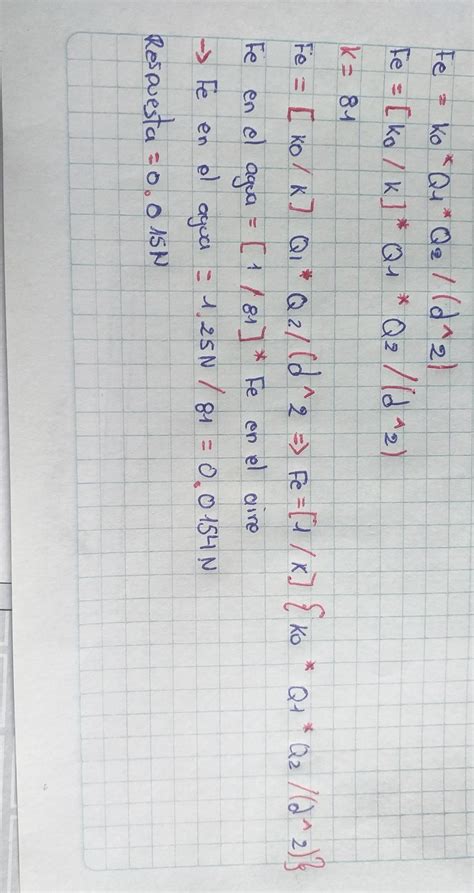 Fe = ko * Q1 * Q2 / (d^2)
Fe = [ko / k] * Q1 * Q2 / (d^2)
k = 81
Fe = [ko / k] Q1 * Q2 / (d^2 => Fe = [1 / k] { ko * Q1 * Q2 / (d^2)}
Fe en el agua = [1 / 81] * Fe en el aire
→ Fe en el agua = 1,25N / 81 = 0,0154N
Respuesta = 0,015N